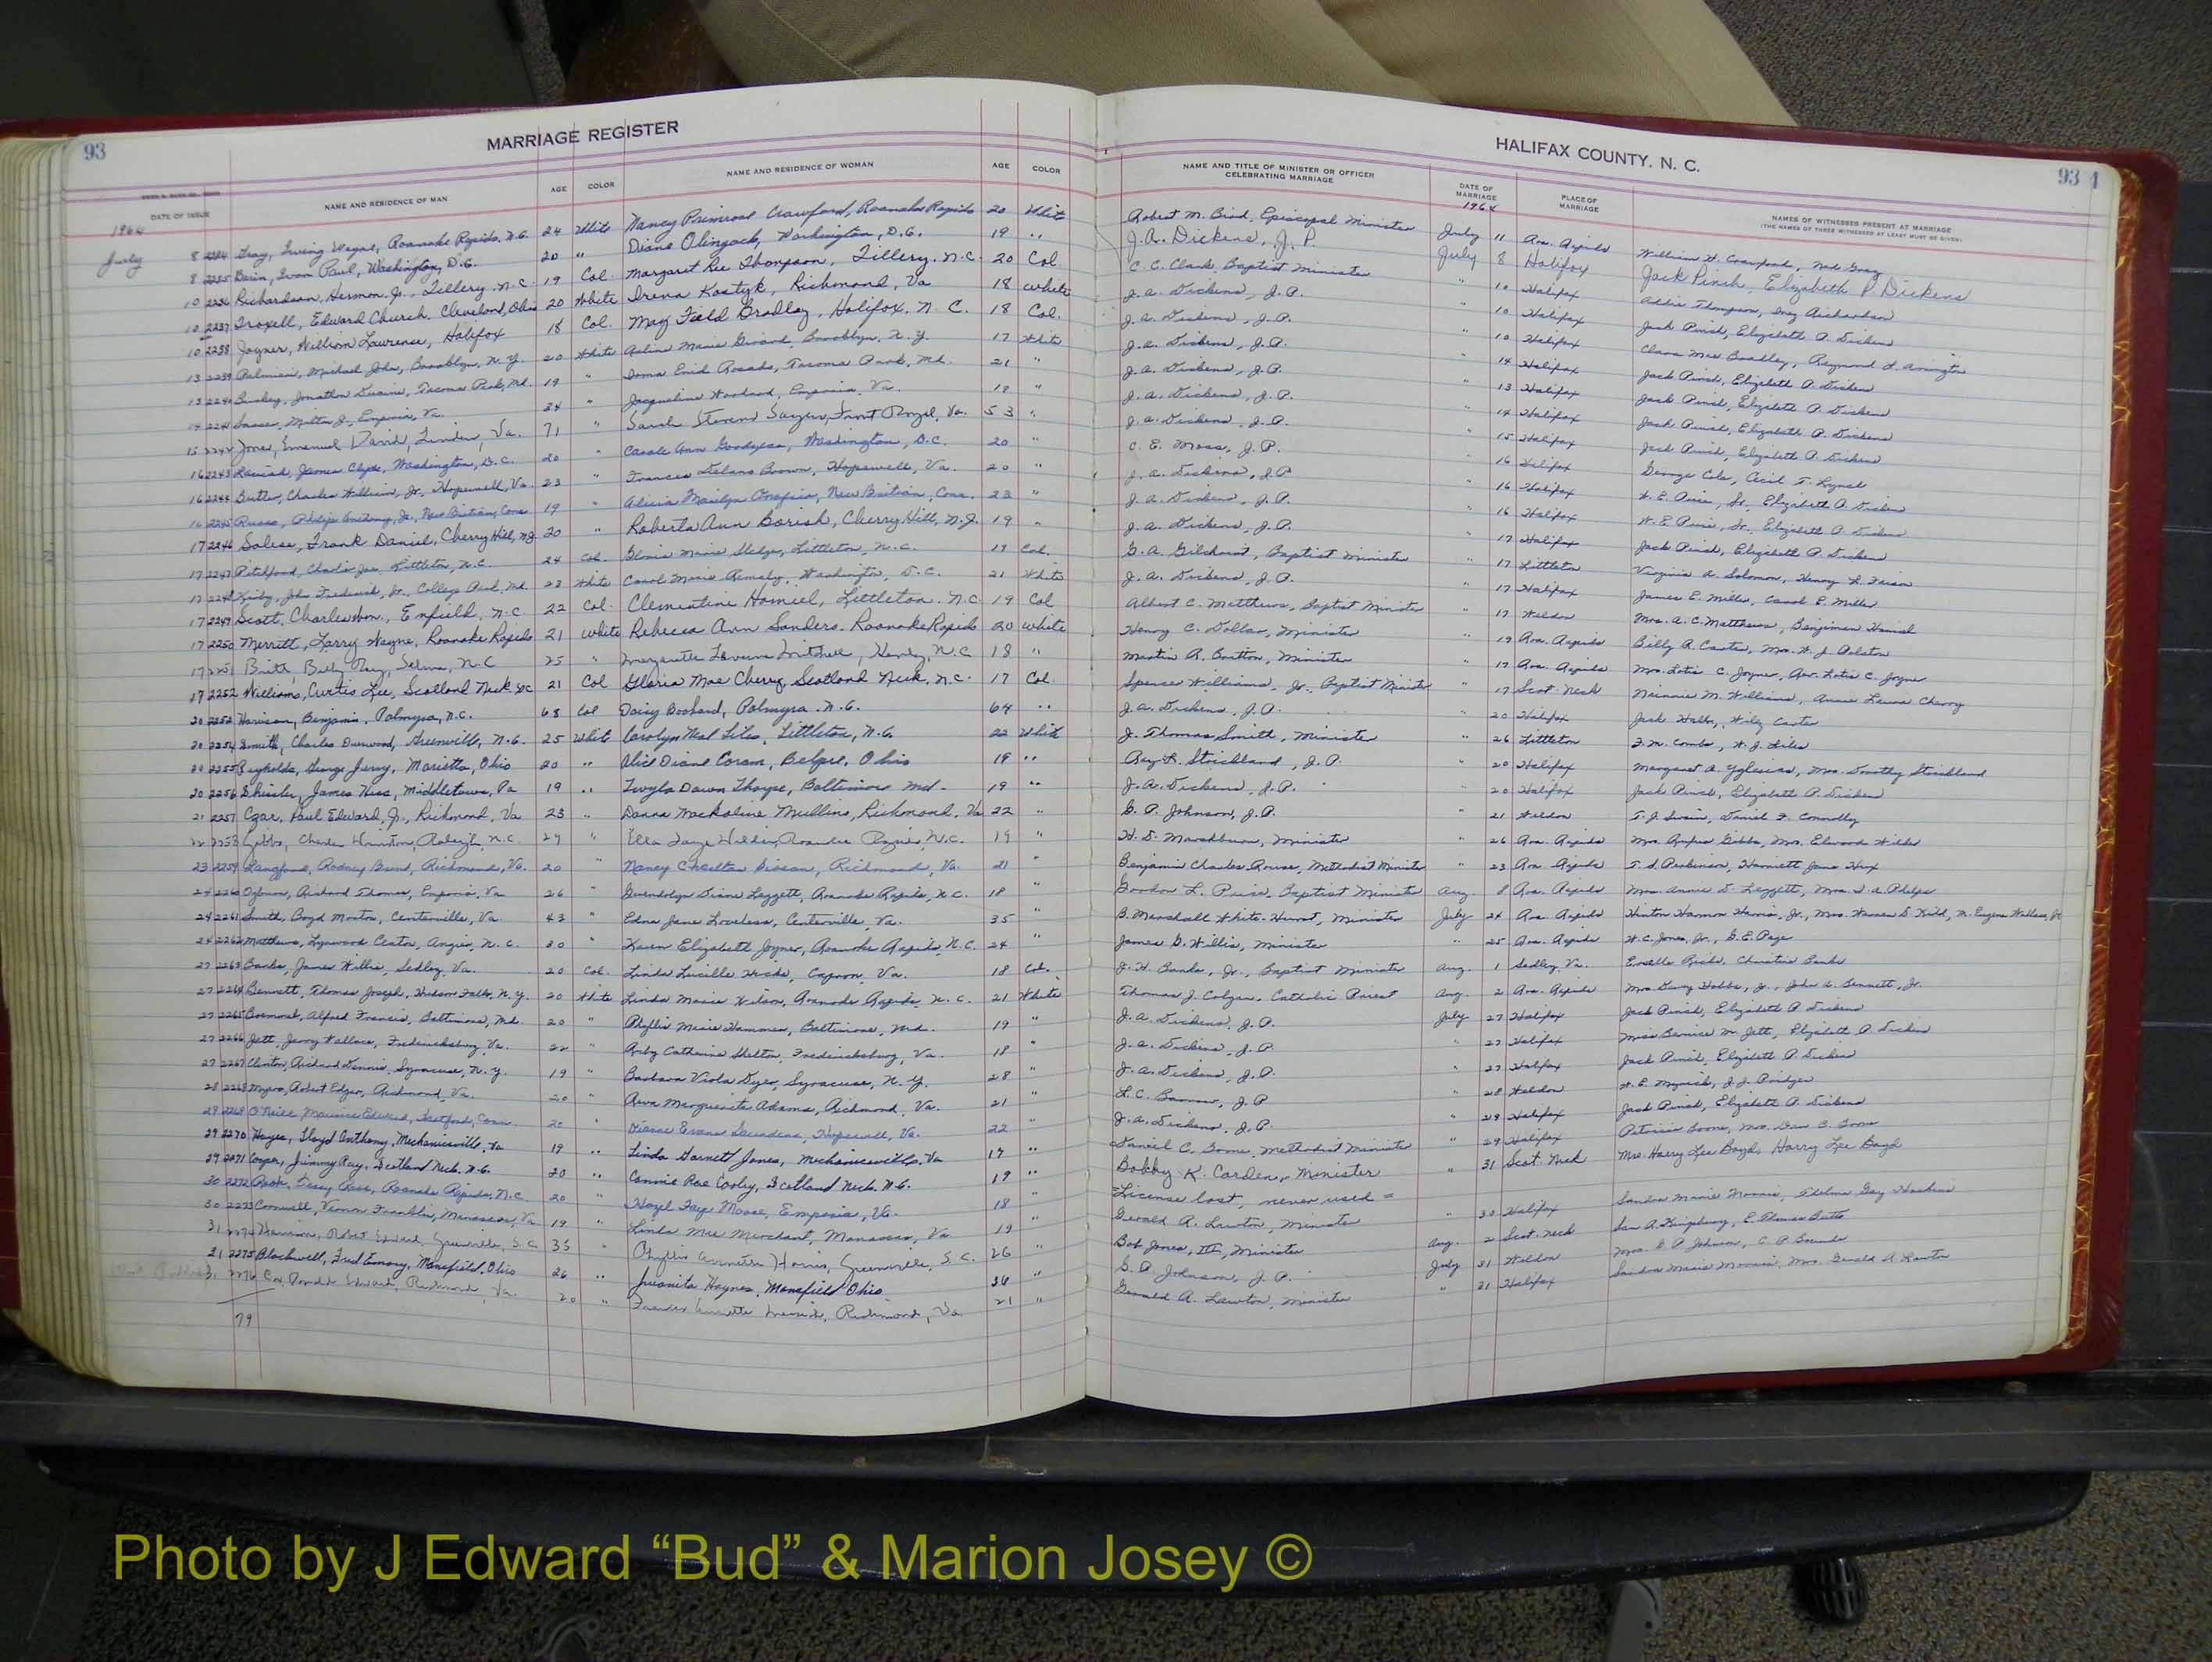 93
MARRIAGE REGISTER
DATE OF ISSUE NAME AND RESIDENCE OF MAN AGE COLOR NAME AND RESIDENCE OF WOMAN AGE COLOR
1964
July 8 2234 Gray, Irving Wayne, Roanoke Rapids, N.C. 24 White Nancy Primrose Crawford, Roanoke Rapids 20 White
8 2235 Ivan Paul, Washington, D.C. 20 " Diane Washington, D.C. 19 "
10 2236 Richardson, Hermon Jr., Tillery, N.C. 19 Col. Margaret Lee Thompson, Tillery, N.C. 20 Col.
10 2237 Troxell, Edward Church, Cleveland, Ohio 20 White Irena Kostyk, Richmond, Va 18 White
10 2238 Joyner, William Lawrence, Halifax 18 Col. May Field Bradley, Halifax, N.C. 18 Col.
13 2239 Palmieri, Michael John, Brooklyn, N.Y. 20 White Marie Brooklyn, N.Y. 17 White
13 2240 Jonathan Md. 19 " Enid Park, Md. 21 "
14 2241 Sasser, Milton J., Emporia, Va. 24 " Jacqueline Woodard, Emporia, Va. 18 "
15 2242 Jones, Emanuel David, Linden, Va. 71 " Sarah Stevens Front Royal, Va. 53 "
16 2243 James Clyde, Washington, D.C. 20 " Carole Ann Washington, D.C. 20 "
16 2244 Butler, Charles William, Jr., Hopewell, Va. 23 " Frances Delano Brown, Hopewell, Va. 20 "
16 2245 Russo, Philip Anthony, Jr., New Britian, Conn 19 " Alicia Marilyn New Britian, Conn. 23 "
17 2246 Salese, Frank Daniel, Cherry Hill, N.J. 20 " Roberta Ann Borish, Cherry Hill, N.J. 19 "
17 2247 Pitchford, Charlie Littleton, N.C. 24 Col. Marie Littleton, N.C. 19 Col.
17 2248 Kirby, John Frederick, Jr., College Park, Md. 23 White Carol Marie Washington, D.C. 21 White
17 2249 Scott, Charles Enfield, N.C. 22 Col. Clementine Littleton, N.C. 19 Col
17 2250 Merritt, Larry Wayne, Roanoke Rapids 21 White Rebecca Ann Sanders, Roanoke Rapids 20 White
17 2251 Britt, Billy Ray, Selma, N.C 25 " Mitchell, N.C 18 "
17 2252 Williams, Curtis Lee, Scotland Neck N.C 21 Col Gloria Mae Cherry, Scotland Neck, N.C. 17 Col.
20 2253 Harrison, Benjamin, Palmyra, N.C. 68 Col Daisy Palmyra, N.C. 64 "
20 2254 Smith, Charles Durwood, Greenville, N.C. 25 White Carolyn Neal Liles, Littleton, N.C 22 White
20 2255 Reynolds, George Jerry, Marietta, Ohio 20 " Alice Diane Belpre, Ohio 18 "
20 2256 James Hess, Middletown, Pa 19 " Twyla Dawn Thorpe, Baltimore Md. 19 "
21 2257 Czar, Paul Edward, Jr., Richmond, Va 23 " Donna Mullins, Richmond, Va 22 "
22 2258 Gibbs, Charles Raleigh, N.C. 29 " Ella Faye Roanoke Rapids, N.C. 19 "
23 2259 Langford, Rodney Richmond, Va. 20 " Nancy Richmond, Va. 21 "
24 2260 Ogburn, Richard Thomas, Emporia, Va 26 " Gwendolyn Diane Leggett, Roanoke Rapids, N.C. 18 "
24 2261 Smith, Boyd Morton, Centerville, Va. 43 " Edna Jane Loveless, Centerville, Va. 35 "
24 2262 Matthews, Lynwood Angier, N.C. 30 " Karen Elizabeth Joyner, Roanoke Rapids, N.C. 24 "
27 2263 Banks, James Willie, Sedley, Va. 20 Col. Linda Lucille Hicks, Capron, Va. 18 Col.
27 2264 Bennett, Thomas Joseph, Hudson Falls, N.Y. 20 White Linda Marie Wilson, Roanoke Rapids, N.C. 21 White
27 2265 Alfred Francis, Baltimore, Md. 20 " Phyllis Marie Baltimore, Md. 19 "
27 2266 Jett, Jerry Wallace, Fredericksburg, Va. 22 " Ruby Catherine Shelton, Fredericksburg, Va. 18 "
27 2267 Clinton, Richard Dennis, Syracuse, N.Y. 19 " Barbara Viola Dyer, Syracuse, N.Y. 28 "
28 2268 Robert Edgar, Richmond, Va. 20 " Marguerite Adams, Richmond, Va. 21 "
29 2269 O'Neill, Maurice Edward, Hartford, Conn. 20 " Dianne Evans Saunders, Hopewell, Va. 22 "
29 2270 Hayes, Lloyd Anthony, Mechanicsville, Va 19 " Linda Garnett Jones, Mechanicsville, Va 17 "
29 2271 Cooper, Jimmy Ray, Scotland Neck, N.C. 20 " Connie Rae Cooley, Scotland Neck, N.C. 19 "
30 2272 Roanoke Rapids, N.C 20 " Hazel Faye Moore, Emporia, Va. 18 "
30 2273 Cornwell, Vernon Franklin, Manassas, Va 19 " Linda Mae Merchant, Manassas, Va 19 "
31 2274 Harrison, Robert Edward, Greenville, S.C. 35 " Phyllis Annette Greenville, S.C. 26 "
31 2275 Blackwell, Fred Emory, Mansfield, Ohio 26 " Juanita Haynes, Mansfield Ohio 36 "
31 2276 Cox, Ronald Edward, Richmond, Va. 20 " Annette Richmond, Va 21 "
79
HALIFAX COUNTY, N. C.
93 1
NAME AND TITLE OF MINISTER OR OFFICER CELEBRATING MARRIAGE DATE OF MARRIAGE PLACE OF MARRIAGE NAMES OF WITNESSES PRESENT AT MARRIAGE
(THE NAMES OF THREE WITNESSES AT LEAST MUST BE GIVEN)
1964
Robert M. Bird, Episcopal Minister July 11 Roa. Rapids William H. Crawford, Ned Gray
J. A. Dickens, J. P. July 8 Halifax Jack Pinch, Elizabeth P. Dickens
C. C. Clark, Baptist Minister " 10 Halifax Addie Thompson, Richardson
J. A. Dickens, J.P. " 10 Halifax Jack Pinch, Elizabeth P. Dickens
J. A. Dickens, J.P. " 10 Halifax Clara Mae Bradley, Raymond L. Arrington
J. A. Dickens, J.P. " 14 Halifax Jack Pinch, Elizabeth P. Dickens
J. A. Dickens, J.P. " 13 Halifax Jack Pinch, Elizabeth P. Dickens
J. A. Dickens, J.P. " 14 Halifax Jack Pinch, Elizabeth P. Dickens
J. A. Dickens, J.P. " 15 Halifax Jack Pinch, Elizabeth P. Dickens
C. E. Moss, J.P. " 16 Halifax George Cole, Cecil T. Lynch
J. A. Dickens, J.P " 16 Halifax Elizabeth P. Dickens
J. A. Dickens, J.P. " 16 Halifax Elizabeth P. Dickens
J. A. Dickens, J.P. " 17 Halifax Jack Pinch, Elizabeth P. Dickens
G. A. Gilchrist, Baptist Minister " 17 Littleton Virginia A. Solomon, Henry L.
J. A. Dickens, J.P. " 17 Halifax James E. Miller, Carol E. Miller
Albert C. Matthews, Baptist Minister " 17 Weldon Mrs. A. C. Matthews, Benjimen
Henry C. Dollar, Minister " 19 Roa. Rapids Billy R. Carter, Mrs. W. J. Ralston
Martin R. Britton, Minister " 17 Roa. Rapids Mrs. Lotis C. Joyner, Rev. Lotis C. Joyner
Spencer Williams, Jr., Baptist Minister " 17 Scot. Neck Minnie M. Williams, Annie Laura Cherry
J. A. Dickens, J.P. " 20 Halifax Jack Wiley Carter
J. Thomas Smith, Minister " 26 Littleton F. M. Combs, W. J. Liles
Ray H. Strickland, J.P. " 20 Halifax Margaret A. Yglesias, Mrs. Dorothy Strickland
J. A. Dickens, J.P. " 20 Halifax Jack Pinch, Elizabeth P. Dickens
G. P. Johnson, J.P. " 21 Weldon T. J. Swain, Daniel F. Connolly
H. D. Mashburn, Minister " 26 Roa. Rapids Mrs. Rufus Gibbs, Mrs. Elwood
Benjamin Charles Rouse, Methodist Minister " 23 Roa. Rapids T. S. Harriett Jane Hux
Gordon L. Price, Baptist Minister Aug. 8 Roa. Rapids Mrs. Annie D. Leggett, Mrs. D. A. Phelps
B. Marshall White-Hurst, Minister July 24 Roa. Rapids Hinton Harris, Jr., Mrs. Warren D. Kidd,
James G. Willis, Minister " 25 Roa. Rapids W. C. Jones, Jr., G. E. Page
J. H. Banks, Jr., Baptist Minister Aug. 1 Sedley, Va. Ricks, Christine Banks
Thomas J. Colgan, Catholic Priest Aug. 2 Roa. Rapids Mrs. Hobbs, Jr., John A. Bennett, Jr.
J. A. Dickens, J.P. July 27 Halifax Jack Pinch, Elizabeth P. Dickens
J. A. Dickens, J.P. " 27 Halifax Miss Bernice M. Jett, Elizabeth P. Dickens
J. A. Dickens, J.P. " 27 Halifax Jack Pinch, Elizabeth P. Dickens
L. C. J.P " 28 Weldon W. E. Myrick, J. J. Bridger
J. A. Dickens, J.P. " 29 Halifax Jack Pinch, Elizabeth P. Dickens
Daniel C. Boone, Methodist Minister " 29 Halifax Patricia Boone, Mrs. Dan C. Boone
Bobby K. Carden, Minister " 31 Scot. Neck Mrs. Harry Lee Boyd, Harry Lee Boyd
License lost, never used =
Gerald A. Lawton, Minister " 30 Halifax Sandra Marie Morris, Thelma Gay Hoskins
Bob Jones, III, Minister Aug. 2 Scot. Neck
G. P. Johnson, J.P. July 31 Weldon Mrs. G. P. Johnson, C. P. Bounds
Gerald A. Lawton, Minister " 31 Halifax Sandra Marie Morris, Mrs. Gerald A. Lawton
Photo by J Edward “Bud” & Marion Josey ©